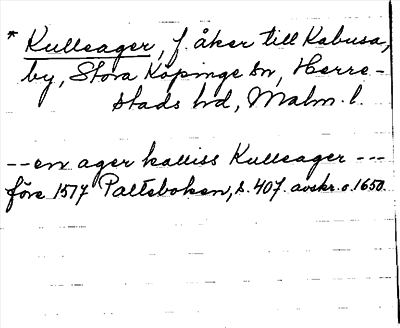 * Kulleager, f. åker till Kabusa,
by, Stora Köpinge sn, Herre-
stads hd, Malm. l.
-- en ager kalliss Kulleager ---
före 1517 Palteboken, s. 407. avskr. o. 1650.